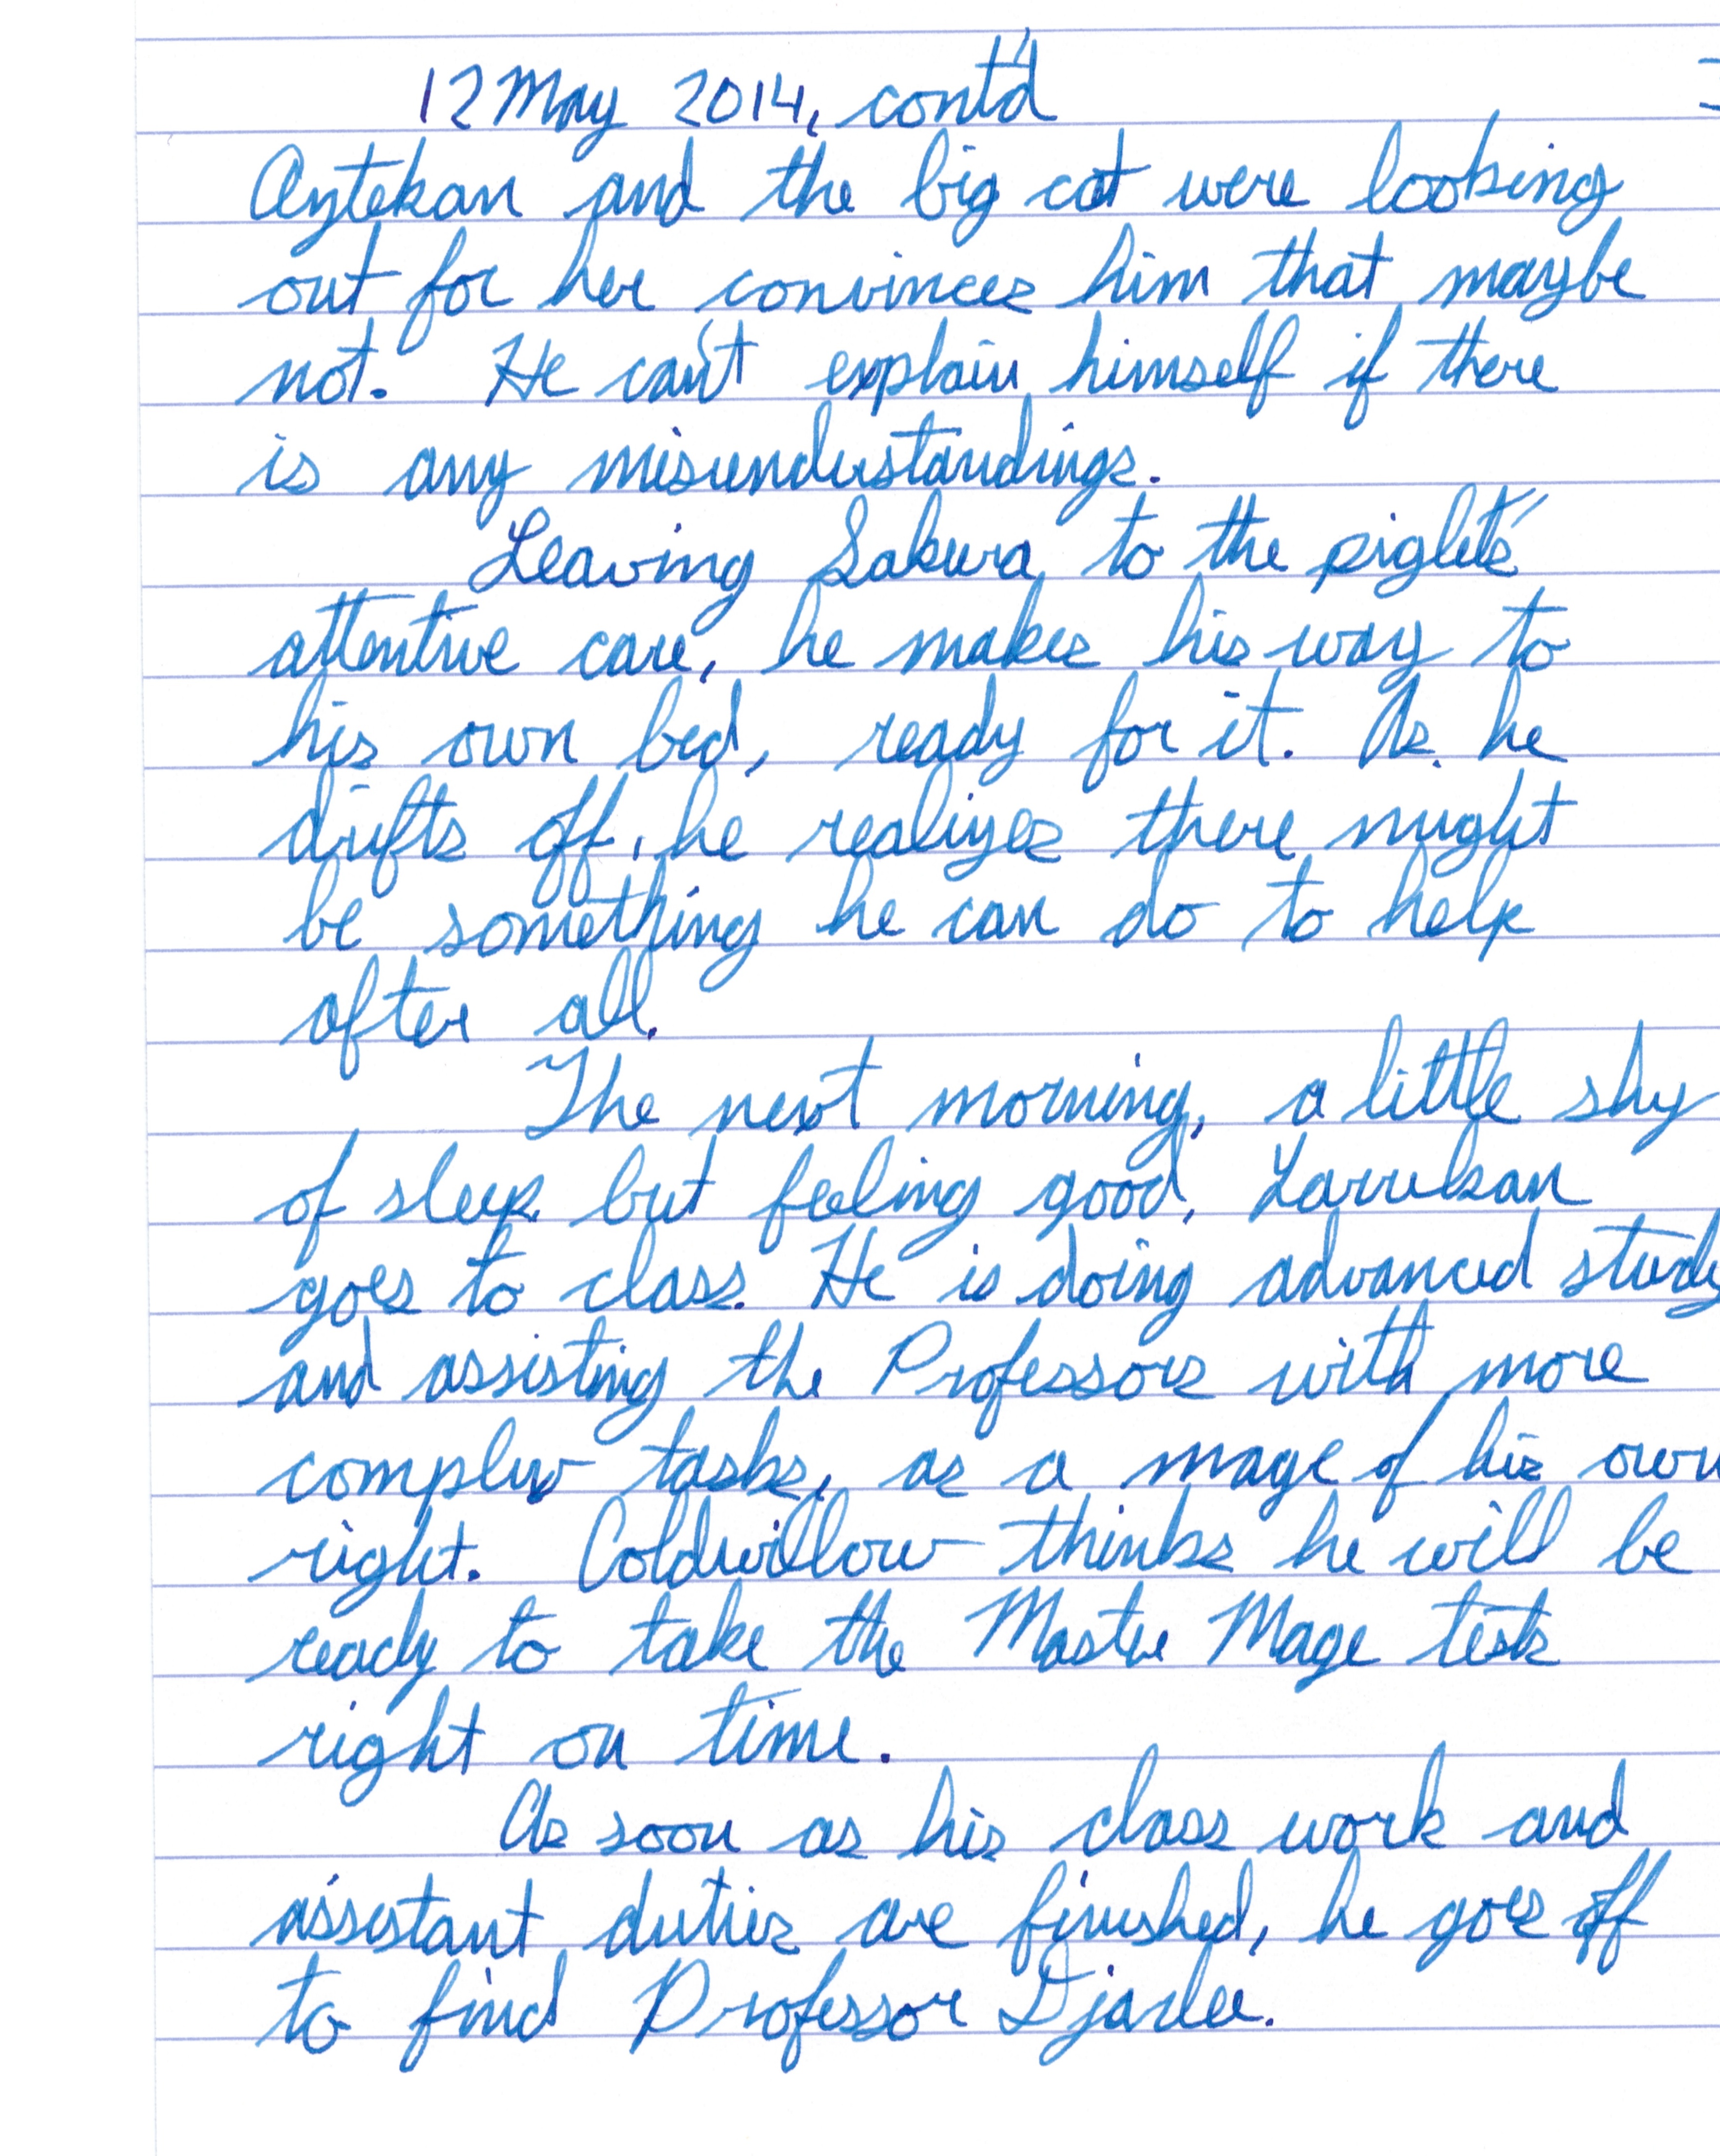 12 May 2014, cont'd
Aztekan and the big cat were looking
out for her convinces him that maybe
not. He can't explain himself if there
is any misunderstandings.
Leaving Sakura to the piglet's
attentive care, he makes his way to
his own bed, ready for it. As he
drifts off, he realizes there might
be something he can do to help
after all.
The next morning, a little shy
of sleep but feeling good, Larrekan
goes to class. He is doing advanced study
and assisting the Professors with more
complex tasks, as a mage of his own
right. Coldwillow thinks he will be
ready to take the Master Mage tests
right on time.
As soon as his class work and
assistant duties are finished, he goes off
to find Professor Djarlee.